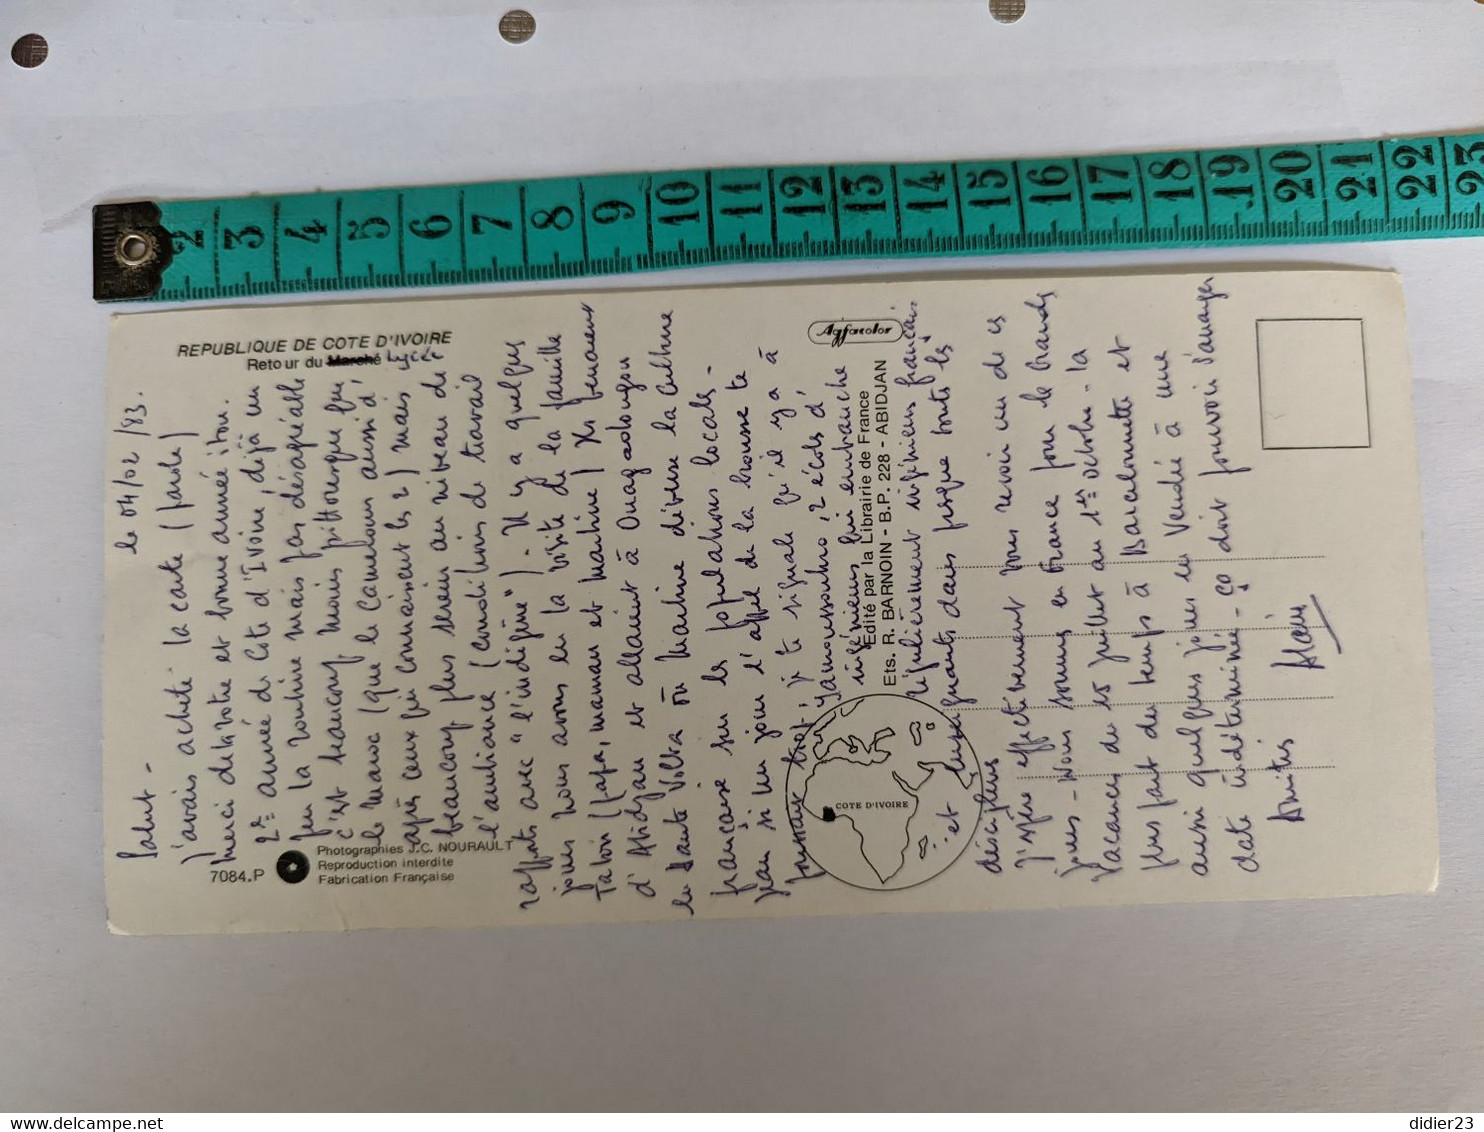 2 3 4 5 6 7 8 9 10 11 12 13 14 15 16 17 18 19 20 21 22 23
REPUBLIQUE DE COTE D'IVOIRE
Retour du Marché Lycée
7084.P
Photographies J.C. NOURAULT
Reproduction interdite
Fabrication Française
Agfacolor
Edité par la Librairie de France
Ets. R. BARNOIN - B.P. 228 - ABIDJAN
COTE D'IVOIRE
le 04/02/83.
Salut -
J'avais acheté la carte (parole)
merci de la votre et bonne année itou.
2e année de Cote d'Ivoire, déjà un
peu la routine mais pas désagréable
c'est beaucoup moins pittoresque que
le Maroc (que le Cameroun aussi d'
après ceux qui connaissent les 2) mais
beaucoup plus serein au niveau de
l'ambiance (conditions de travail
rapports avec "l'indigène"). Il y a quelques
jours nous avons eu la visite de la famille
(papa, maman et Martine) Ils venaient
d'Abidjan et allaient à Ouagadougou
en Haute Volta où Martine diffuse la culture
française sur les populations locales -
Jean si un jour l'appel de la brousse te
trop, je te signale qu'il y a à
Yamoussoukro, 2 écoles d'
ingénieurs qui embauche
régulièrement ingénieurs français
et enseignants dans presque toutes les
disciplines
J'espère effectivement vous revoir un de ces
jours - Nous sommes en France pour les Grandes
Vacances du 15 juillet au 1er octobre - la
plus part du temps à Barcelonnette et
aussi quelques jours en Vendée à une
date indéterminée - ça doit pouvoir s'arranger
Amitiés
Alain
didier23